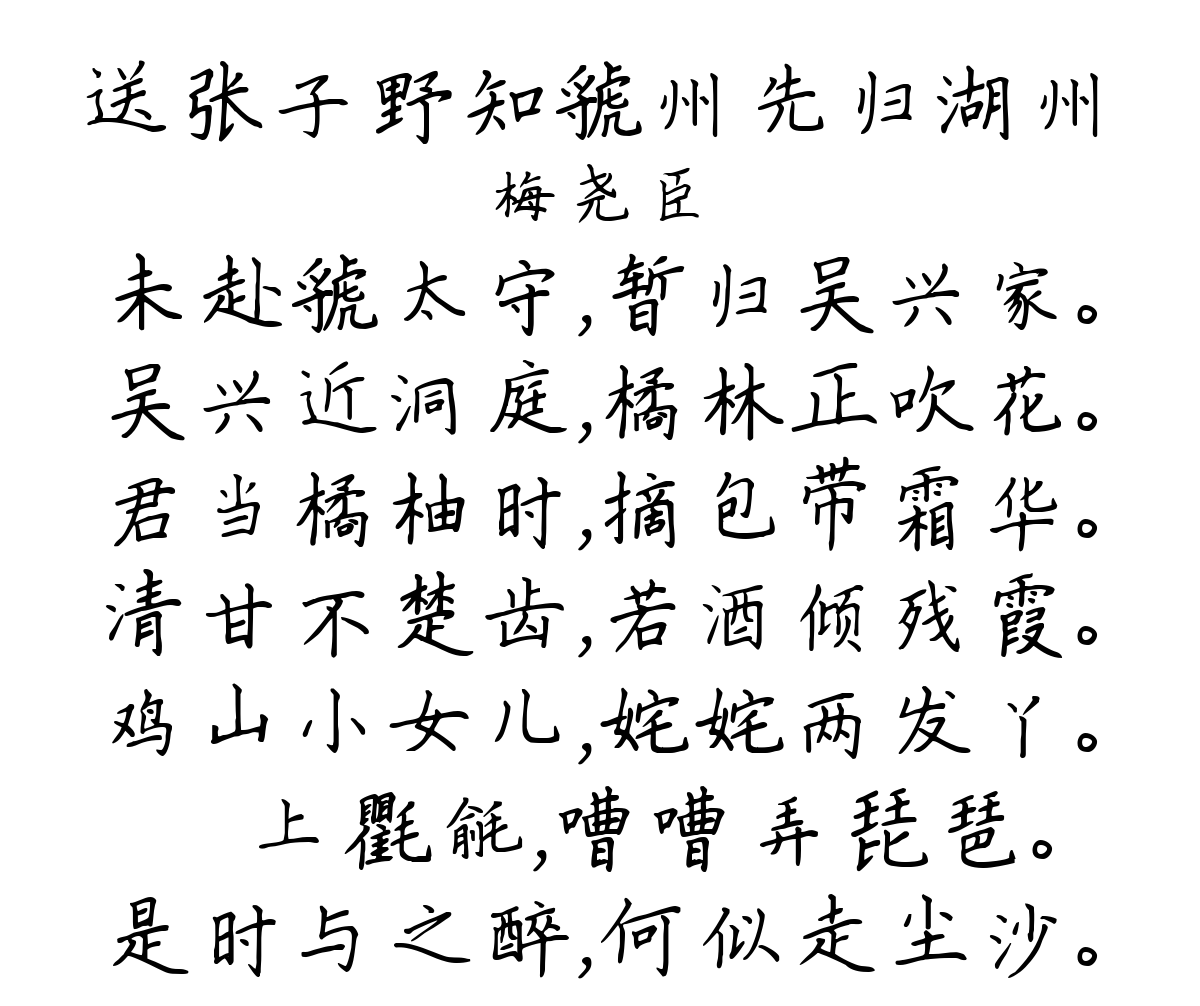 送张子野知虢州先归湖州
梅尧臣
未赴虢太守,暂归吴兴家。
吴兴近洞庭,橘林正吹花。
君当橘柚时,摘包带霜华。
清甘不楚齿,若酒倾残霞。
鸡山小女儿,姹姹两发丫。
上氍毹,嘈嘈弄琵琶。
是时与之醉,何似走尘沙。